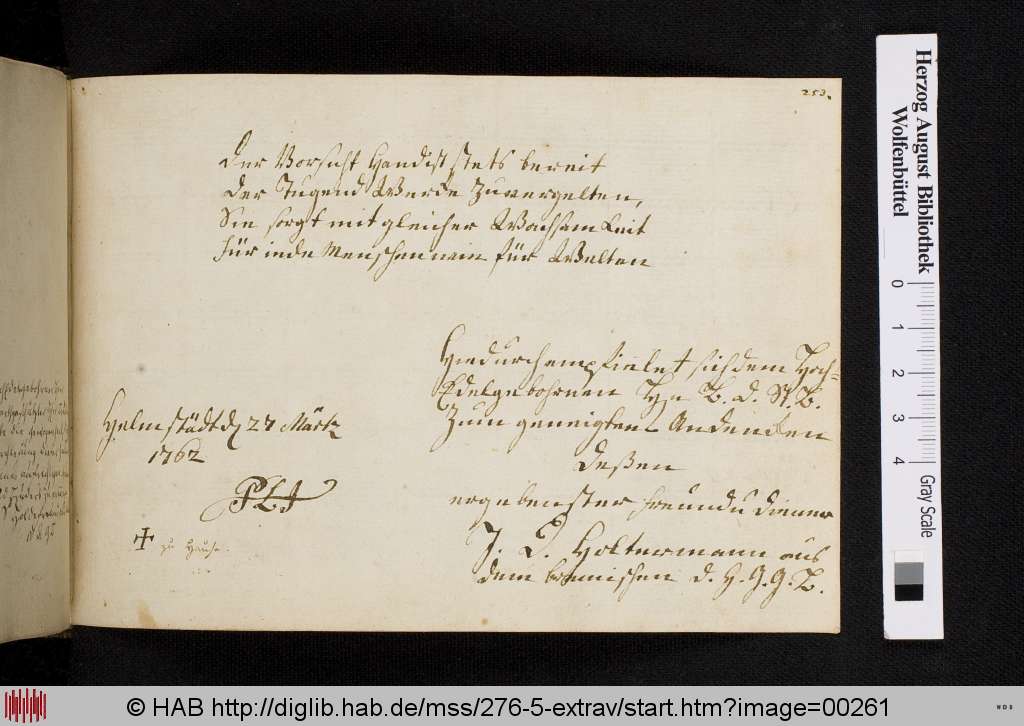 253.
Der Vorsicht Hand ist stets bereit
der Tugend Werde zu vergelten,
Sie sorgt mit gleicher Wachsamkeit
für iede Menschen wie für Welten
Hiedurch empfielet sich dem Hoch-
Edelgebohrnen H B. d. St. B.
zum geneigten Andencken
deßen
ergebenster Freund u Diener
J. D. Holtermann aus
dem bremischen d. H. G. G. B.
Helmstädt d 27 Märtz
1762
✝ zu Hause.
Herzog August Bibliothek
Wolfenbüttel
0
1
2
3
4
Gray Scale
© HAB http://diglib.hab.de/mss/276-5-extrav/start.htm?image=00261
WDB